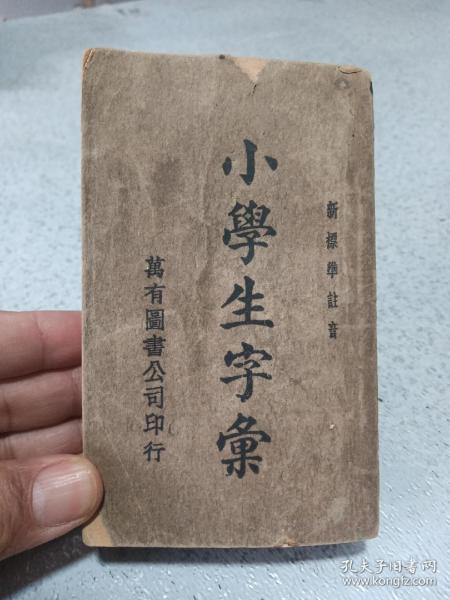 新標準註音
小學生字彙
萬有圖書公司印行
孔夫子旧书网
www.kongfz.com